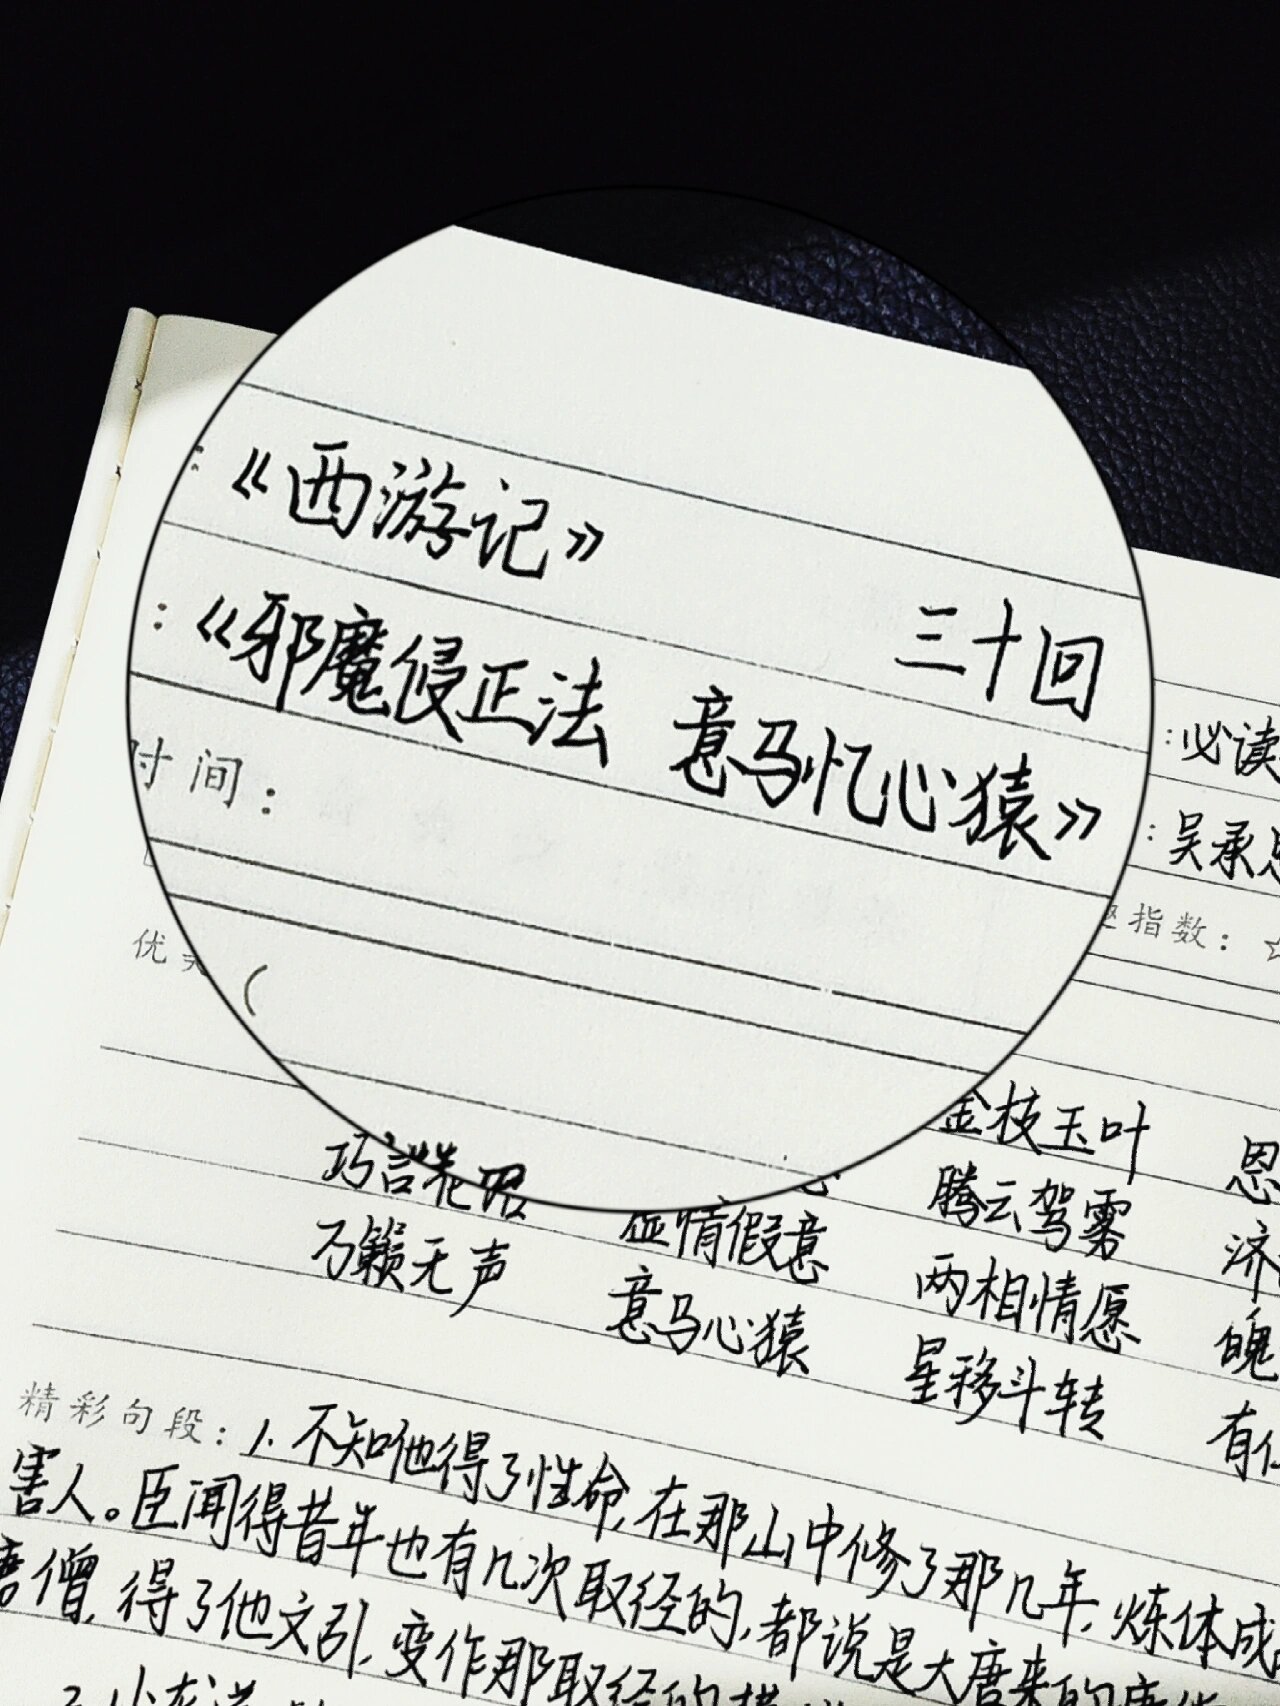 ：《西游记》
三十回
：《邪魔侵正法 意马忆心猿》
：必读
：吴承恩
时间：
趣指数：☆
优美
（
金枝玉叶 恩
巧言花 腾云驾雾 济
虚情假意 两相情愿 魄
万籁无声 意马心猿 星移斗转 有
精彩句段：1.不知他得了性命,在那山中修了那几年,炼体成
害人。臣闻得昔年也有几次取经的,都说是大唐来的唐
唐僧,得了他文引,变作那取经的模